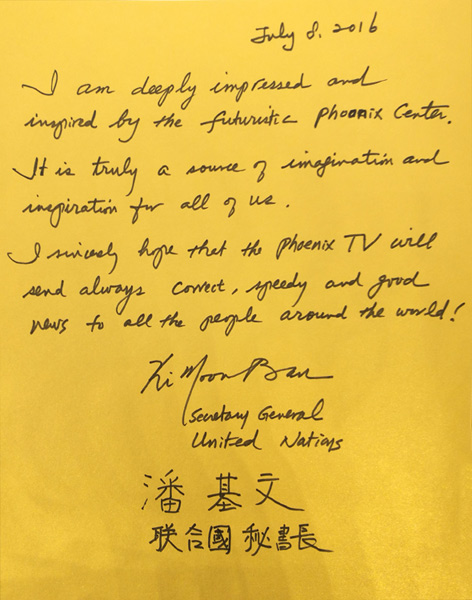 July 8. 2016
I am deeply impressed and
inspired by the futuristic Phoenix Center.
It is truly a source of imagination and
inspiration for all of us.
I sincerely hope that the Phoenix TV will
send always correct, speedy and good
news to all the people around the world!
Ki Moon Ban
Secretary General
United Nations
潘基文
联合國 秘書長